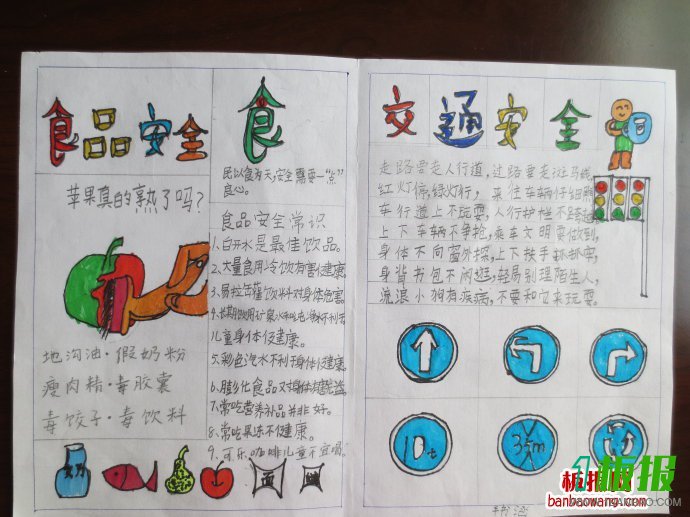 食品安全
苹果真的熟了吗？
地沟油·假奶粉
瘦肉精·毒胶囊
毒饺子·毒饮料
食
民以食为天,安全需要一“点”
良心。
食品安全常识
1、白开水是最佳饮品。
2、大量食用冷饮有害健康
3、易拉缶雚饮料对身体危害
4、长期饮用矿泉水和纯净水不利于
儿童身体健康。
5、彩色汽水不利于身体健康。
6、膨化食品又对身体
7、常吃营养补品并非好。
8、常吃果冻不健康。
9、可乐、咖啡儿童不宜喝。
交通安全
走路要走人行道,过路要走斑马线,
红灯停,绿灯行,来往车辆仔细瞧
车行道上不玩耍,人行护栏不跨越
上下车辆不争抢,乘车文明要做到,
身体不向窗外探,上下扶手抓牢,
身背书包不闲逛,轻易别理陌生人,
流浪小狗有疾病,不要和它来玩耍。
10t
3.5m
板报
板报网
banbaowang.com